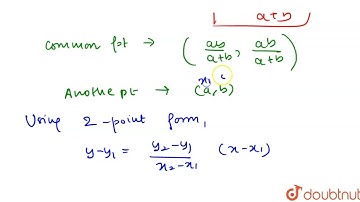 a+b
Common pt → ( ab/a+b, ab/a+b )
x₁
Another pt → (a, b)
Using 2-point form,
y-y₁ = y₂-y₁/x₂-x₁ (x-x₁)
doubtnut